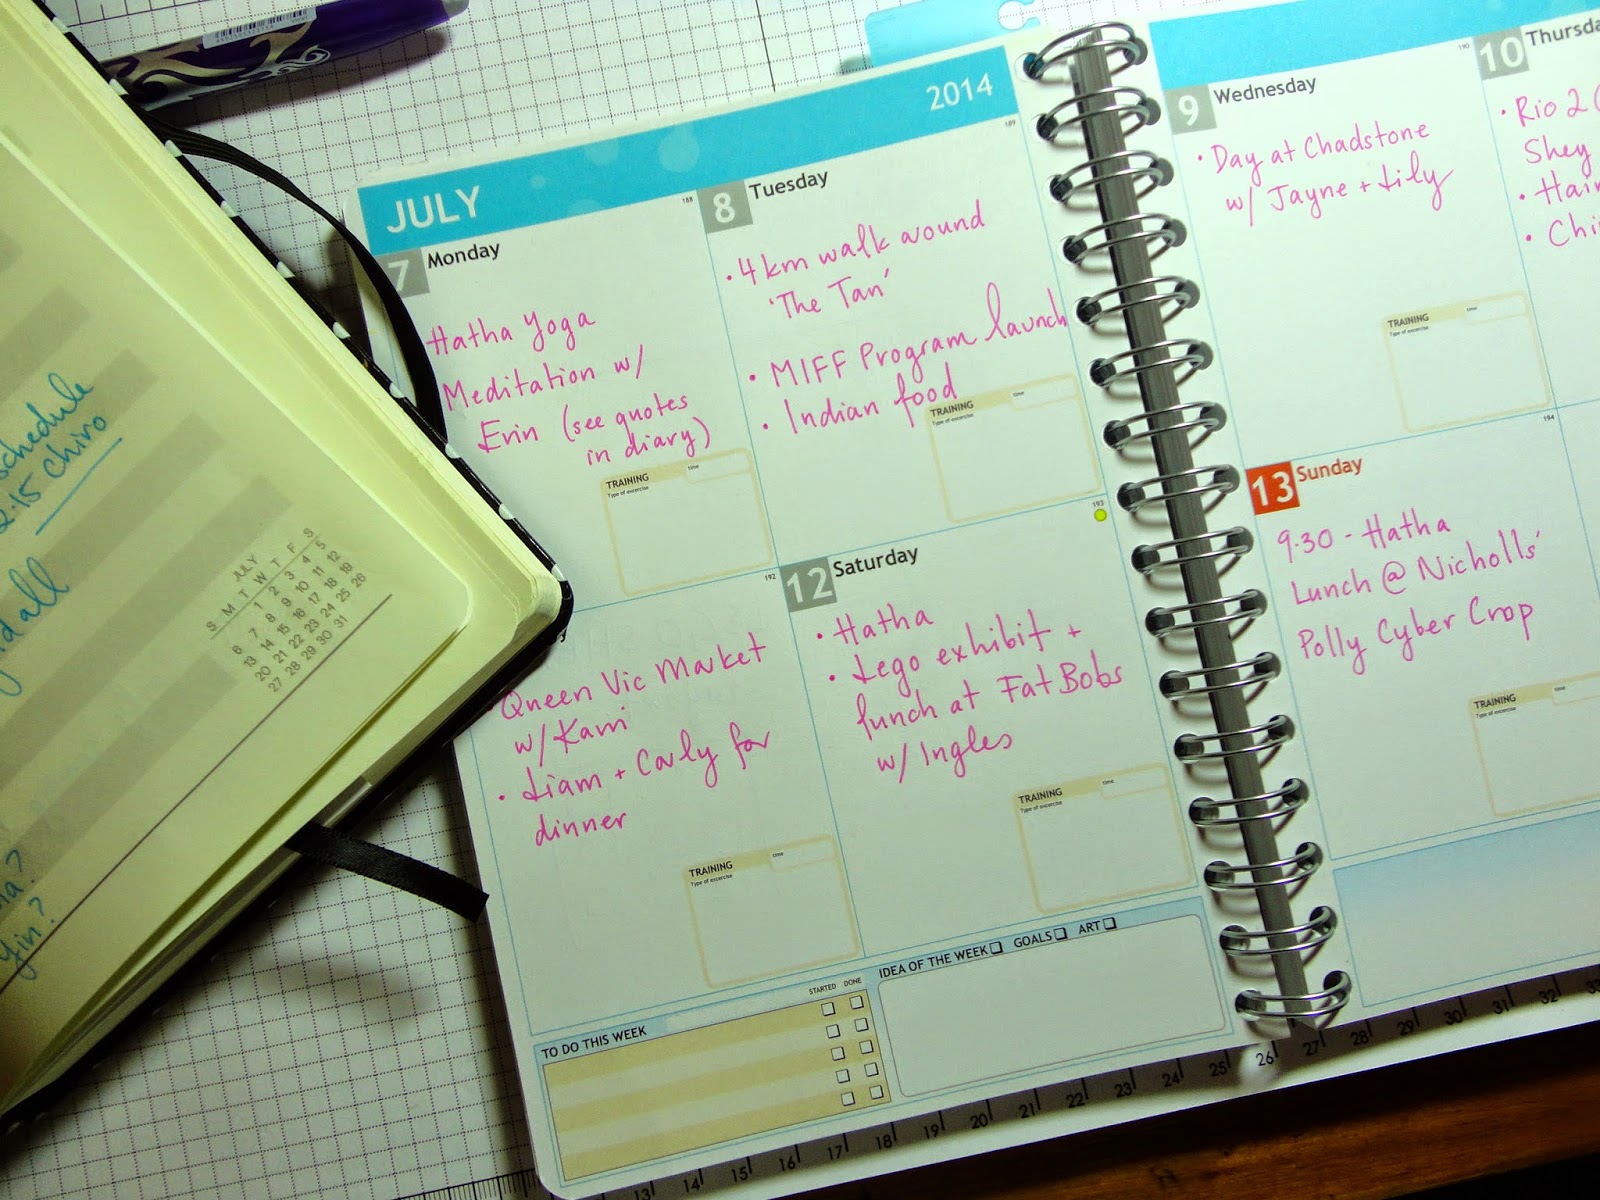 JULY
2014
7 Monday
188
Hatha Yoga
Meditation w/
Erin (see quotes
in diary)
TRAINING
time
Type of excercise
8 Tuesday
189
• 4 km walk around
'The Tan'
• MIFF Program launch
• Indian food
TRAINING
time
Type of excercise
192
• Queen Vic Market
w/ Kami
• Liam + Carly for
dinner
TRAINING
time
Type of excercise
12 Saturday
193
• Hatha
• Lego exhibit +
lunch at Fat Bobs
w/ Ingles
TRAINING
time
Type of excercise
TO DO THIS WEEK
STARTED DONE
IDEA OF THE WEEK GOALS ART
9 Wednesday
190
• Day at Chadstone
w/ Jayne + Lily
TRAINING
time
Type of excercise
10 Thursda
• Rio 2 (
Shey
• Hair
• Chi
194
13 Sunday
9.30 - Hatha
Lunch @ Nicholls'
Polly Cyber Crop
TRAINING
time
Type of excercise
schedule
2.15 Chiro
all
JULY
S M T W T F S
1 2 3 4 5
6 7 8 9 10 11 12
13 14 15 16 17 18 19
20 21 22 23 24 25 26
27 28 29 30 31
Yin?
13 14 15 16 17 18 19 20 21 22 23 24 25 26 27 28 29 30 31 32 33